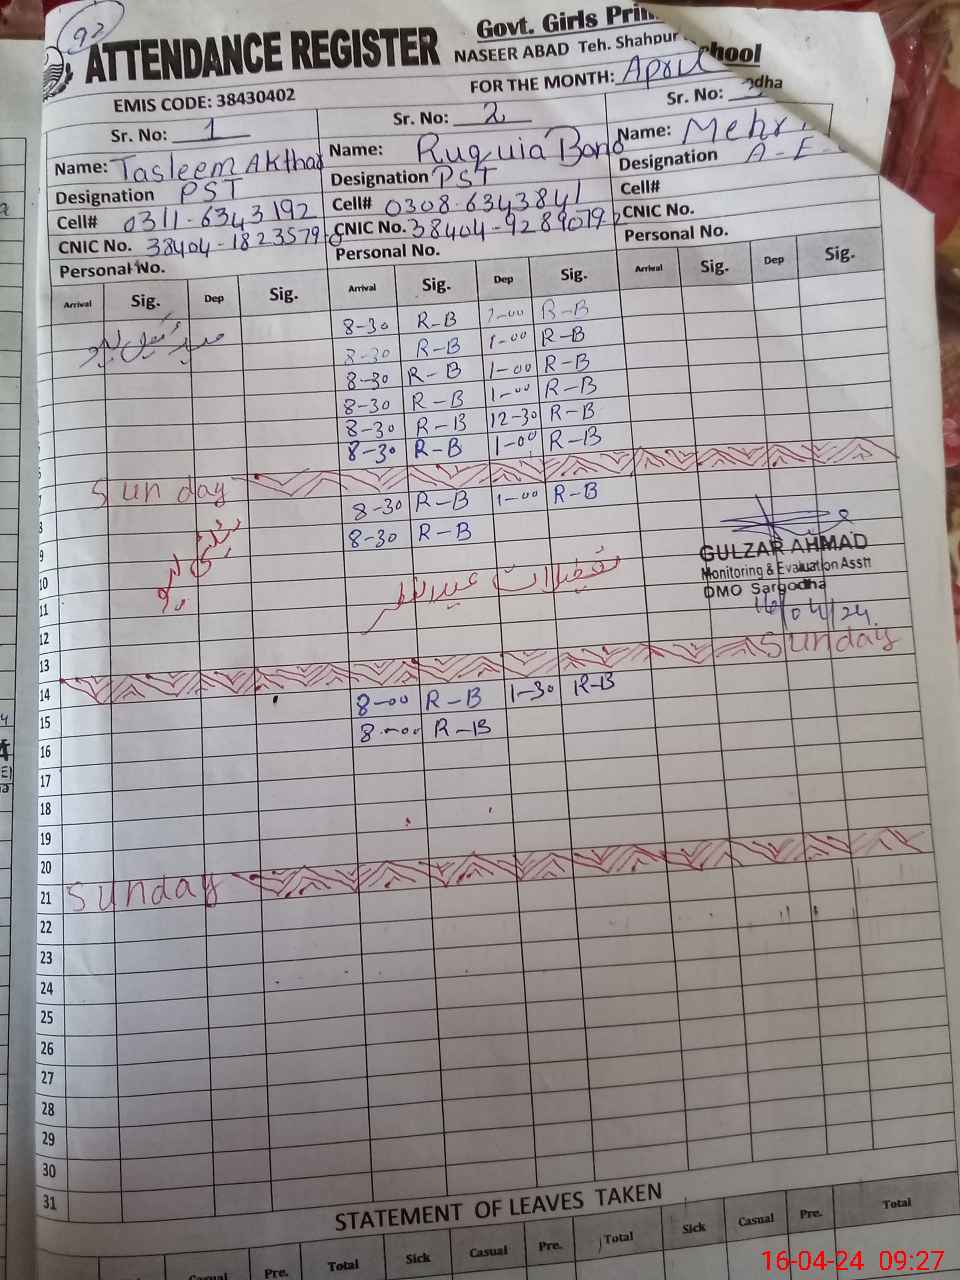 92
ATTENDANCE REGISTER
Govt. Girls Prim
hool
NASEER ABAD Teh. Shahpur
odha
EMIS CODE: 38430402
FOR THE MONTH: April
Sr. No: 1
Sr. No: 2
Sr. No:
Name: Tasleem Akthar
Name: Ruquia Bano
Name: Mehr
Designation PST
Designation PST
Designation A-E-
Cell# 0311-6343192
Cell# 0308-6343841
Cell#
CNIC No. 38404-1823579-0
CNIC No. 38404-9289019-2
CNIC No.
Personal No.
Personal No.
Personal No.
Arrival Sig. Dep Sig. Arrival Sig. Dep Sig. Arrival Sig. Dep Sig.
8-30 R-B 1-00 R-B
8-30 R-B 1-00 R-B
8-30 R-B 1-00 R-B
8-30 R-B 1-00 R-B
8-30 R-B 12-30 R-B
8-30 R-B 1-00 R-B
Sunday
8-30 R-B 1-00 R-B
8 8-30 R-B
9
10 تعطیلات عیدالفطر
GULZAR AHMAD
Monitoring & Evaluation Asstt
DMO Sargodha
16/04/24
11
12
13 Sunday
14 8-00 R-B 1-30 R-B
15 8-00 R-B
16
17
18
19
20
21 Sunday
22
23
24
25
26
27
28
29
30
31
STATEMENT OF LEAVES TAKEN
Casual Pre. Total Sick Casual Pre. Total Sick Casual Pre. Total
16-04-24 09:27